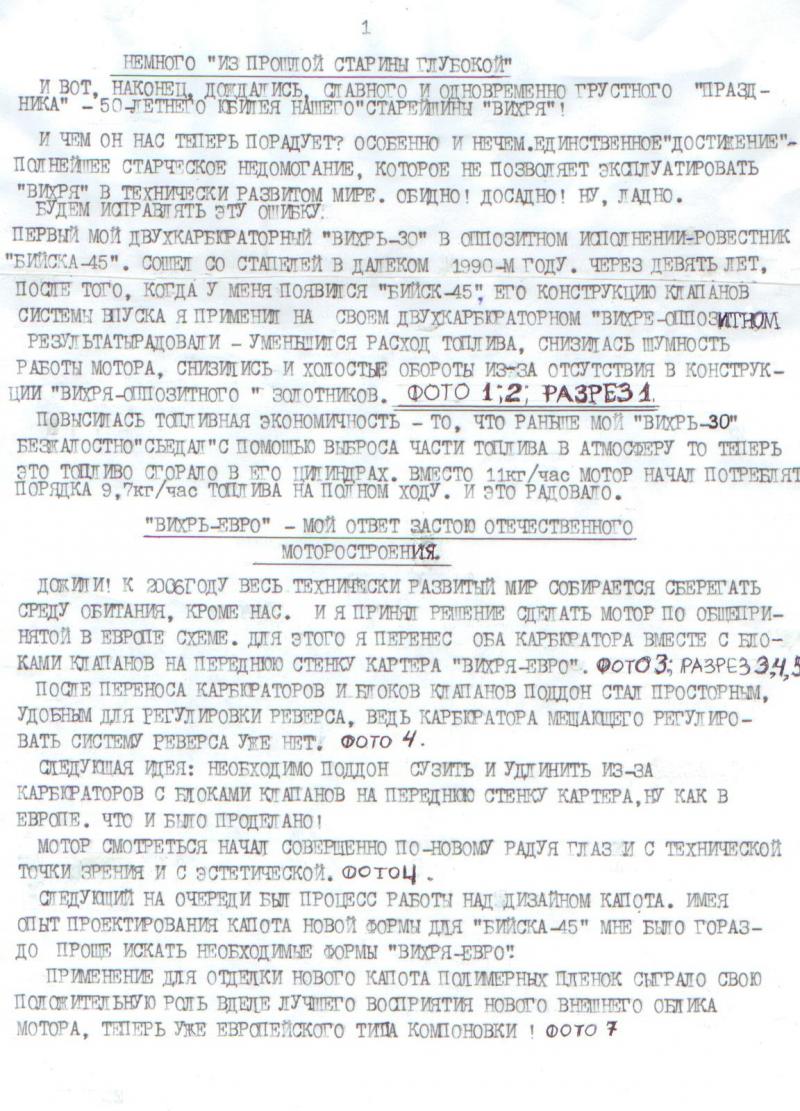 1
НЕМНОГО "ИЗ ПРОШЛОЙ СТАРИНЫ ГЛУБОКОЙ"
И ВОТ, НАКОНЕЦ, ДОЖДАЛИСЬ, СЛАВНОГО И ОДНОВРЕМЕННО ГРУСТНОГО "ПРАЗД-
НИКА" - 50-ЛЕТНЕГО ЮБИЛЕЯ НАШЕГО"СТАРЕЙШИНЫ "ВИХРЯ"!
И ЧЕМ ОН НАС ТЕПЕРЬ ПОРАДУЕТ? ОСОБЕННО И НЕЧЕМ.ЕДИНСТВЕННОЕ"ДОСТИЖЕНИЕ"-
ПОЛНЕЙШЕЕ СТАРЧЕСКОЕ НЕДОМОГАНИЕ, КОТОРОЕ НЕ ПОЗВОЛЯЕТ ЭКСПЛУАТИРОВАТЬ
"ВИХРЯ" В ТЕХНИЧЕСКИ РАЗВИТОМ МИРЕ. ОБИДНО! ДОСАДНО! НУ, ЛАДНО.
БУДЕМ ИСПРАВЛЯТЬ ЭТУ ОШИБКУ.
ПЕРВЫЙ МОЙ ДВУХКАРБЮРАТОРНЫЙ "ВИХРЬ-30" В ОППОЗИТНОМ ИСПОЛНЕНИИ-РОВЕСТНИК
"БИЙСКА-45". СОШЕЛ СО СТАПЕЛЕЙ В ДАЛЕКОМ 1990-М ГОДУ. ЧЕРЕЗ ДЕВЯТЬ ЛЕТ,
ПОСЛЕ ТОГО, КОГДА У МЕНЯ ПОЯВИЛСЯ "БИЙСК-45", ЕГО КОНСТРУКЦИЮ КЛАПАНОВ
СИСТЕМЫ ВПУСКА Я ПРИМЕНИЛ НА СВОЕМ ДВУХКАРБЮРАТОРНОМ "ВИХРЕ-ОППОЗИТНОМ
РЕЗУЛЬТАТЫРАДОВАЛИ - УМЕНЬШИЛСЯ РАСХОД ТОПЛИВА, СНИЗИЛАСЬ ШУМНОСТЬ
РАБОТЫ МОТОРА, СНИЗИЛИСЬ И ХОЛОСТЫЕ ОБОРОТЫ ИЗ-ЗА ОТСУТСТВИЯ В КОНСТРУК-
ЦИИ "ВИХРЯ-ОППОЗИТНОГО " ЗОЛОТНИКОВ. ФОТО 1;2; РАЗРЕЗ 1.
ПОВЫСИЛАСЬ ТОПЛИВНАЯ ЭКОНОМИЧНОСТЬ - ТО, ЧТО РАНЬШЕ МОЙ "ВИХРЬ-30"
БЕЗЖАЛОСТНО"СЬЕДАЛ"С ПОМОЩЬЮ ВЫБРОСА ЧАСТИ ТОПЛИВА В АТМОСФЕРУ ТО ТЕПЕРЬ
ЭТО ТОПЛИВО СГОРАЛО В ЕГО ЦИЛИНДРАХ. ВМЕСТО 11кг/час МОТОР НАЧАЛ ПОТРЕБЛЯТ
ПОРЯДКА 9,7кг/час ТОПЛИВА НА ПОЛНОМ ХОДУ. И ЭТО РАДОВАЛО.
"ВИХРЬ-ЕВРО" - МОЙ ОТВЕТ ЗАСТОЮ ОТЕЧЕСТВЕННОГО
МОТОРОСТРОЕНИЯ.
ДОЖИЛИ! К 2006ГОДУ ВЕСЬ ТЕХНИЧЕСКИ РАЗВИТЫЙ МИР СОБИРАЕТСЯ СБЕРЕГАТЬ
СРЕДУ ОБИТАНИЯ, КРОМЕ НАС. И Я ПРИНЯЛ РЕШЕНИЕ СДЕЛАТЬ МОТОР ПО ОБЩЕПРИ-
НЯТОЙ В ЕВРОПЕ СХЕМЕ. ДЛЯ ЭТОГО Я ПЕРЕНЕС ОБА КАРБЮРАТОРА ВМЕСТЕ С БЛО-
КАМИ КЛАПАНОВ НА ПЕРЕДНЮЮ СТЕНКУ КАРТЕРА "ВИХРЯ-ЕВРО". ФОТО 3; РАЗРЕЗ 3,4,5
ПОСЛЕ ПЕРЕНОСА КАРБЮРАТОРОВ И БЛОКОВ КЛАПАНОВ ПОДДОН СТАЛ ПРОСТОРНЫМ,
УДОБНЫМ ДЛЯ РЕГУЛИРОВКИ РЕВЕРСА, ВЕДЬ КАРБЮРАТОРА МЕШАЮЩЕГО РЕГУЛИРО-
ВАТЬ СИСТЕМУ РЕВЕРСА УЖЕ НЕТ. ФОТО 4.
СЛЕДУЮЩАЯ ИДЕЯ: НЕОБХОДИМО ПОДДОН СУЗИТЬ И УДЛИНИТЬ ИЗ-ЗА
КАРБЮРАТОРОВ С БЛОКАМИ КЛАПАНОВ НА ПЕРЕДНЮЮ СТЕНКУ КАРТЕРА,НУ КАК В
ЕВРОПЕ. ЧТО И БЫЛО ПРОДЕЛАНО!
МОТОР СМОТРЕТЬСЯ НАЧАЛ СОВЕРШЕННО ПО-НОВОМУ РАДУЯ ГЛАЗ И С ТЕХНИЧЕСКОЙ
ТОЧКИ ЗРЕНИЯ И С ЭСТЕТИЧЕСКОЙ. ФОТО 4.
СЛЕДУЮЩИЙ НА ОЧЕРЕДИ БЫЛ ПРОЦЕСС РАБОТЫ НАД ДИЗАЙНОМ КАПОТА. ИМЕЯ
ОПЫТ ПРОЕКТИРОВАНИЯ КАПОТА НОВОЙ ФОРМЫ ДЛЯ "БИЙСКА-45" МНЕ БЫЛО ГОРАЗ-
ДО ПРОЩЕ ИСКАТЬ НЕОБХОДИМЫЕ ФОРМЫ "ВИХРЯ-ЕВРО".
ПРИМЕНЕНИЕ ДЛЯ ОТДЕЛКИ НОВОГО КАПОТА ПОЛИМЕРНЫХ ПЛЕНОК СЫГРАЛО СВОЮ
ПОЛОЖИТЕЛЬНУЮ РОЛЬ ВДЕЛЕ ЛУЧШЕГО ВОСПРИЯТИЯ НОВОГО ВНЕШНЕГО ОБЛИКА
МОТОРА, ТЕПЕРЬ УЖЕ ЕВРОПЕЙСКОГО ТИПА КОМПОНОВКИ ! ФОТО 7